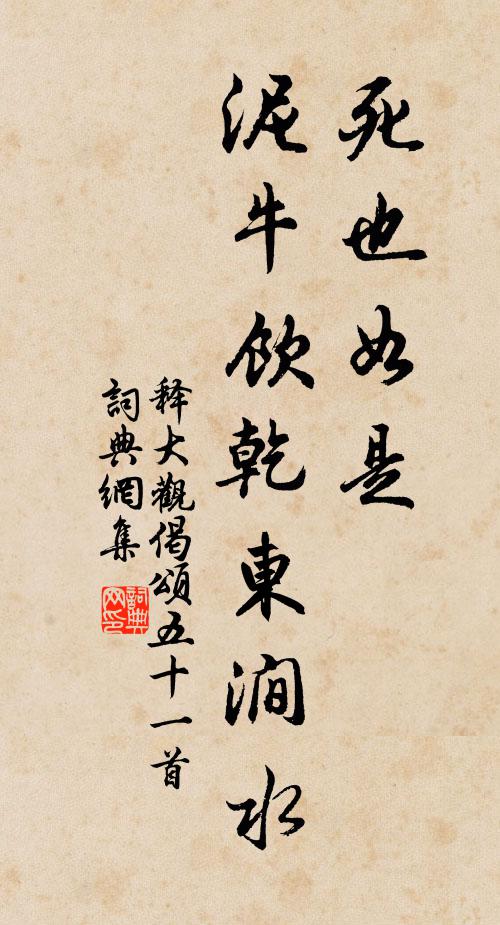 死也如是
泥牛飲乾東澗水
释大觀偈頌五十一首
詞典網集
詞典
网印